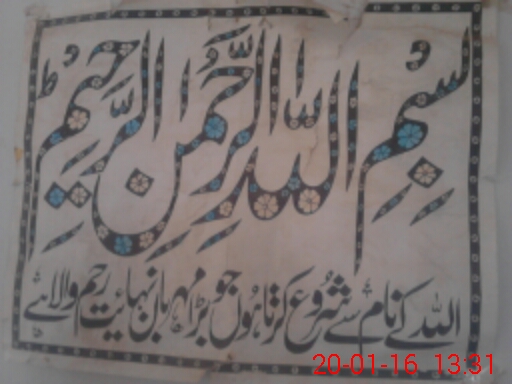 بسم الله الرحمن الرحيم
اللہ کے نام سے شروع کرتا ہوں جو بڑا مہربان نہایت رحم والا ہے
20-01-16 13:31